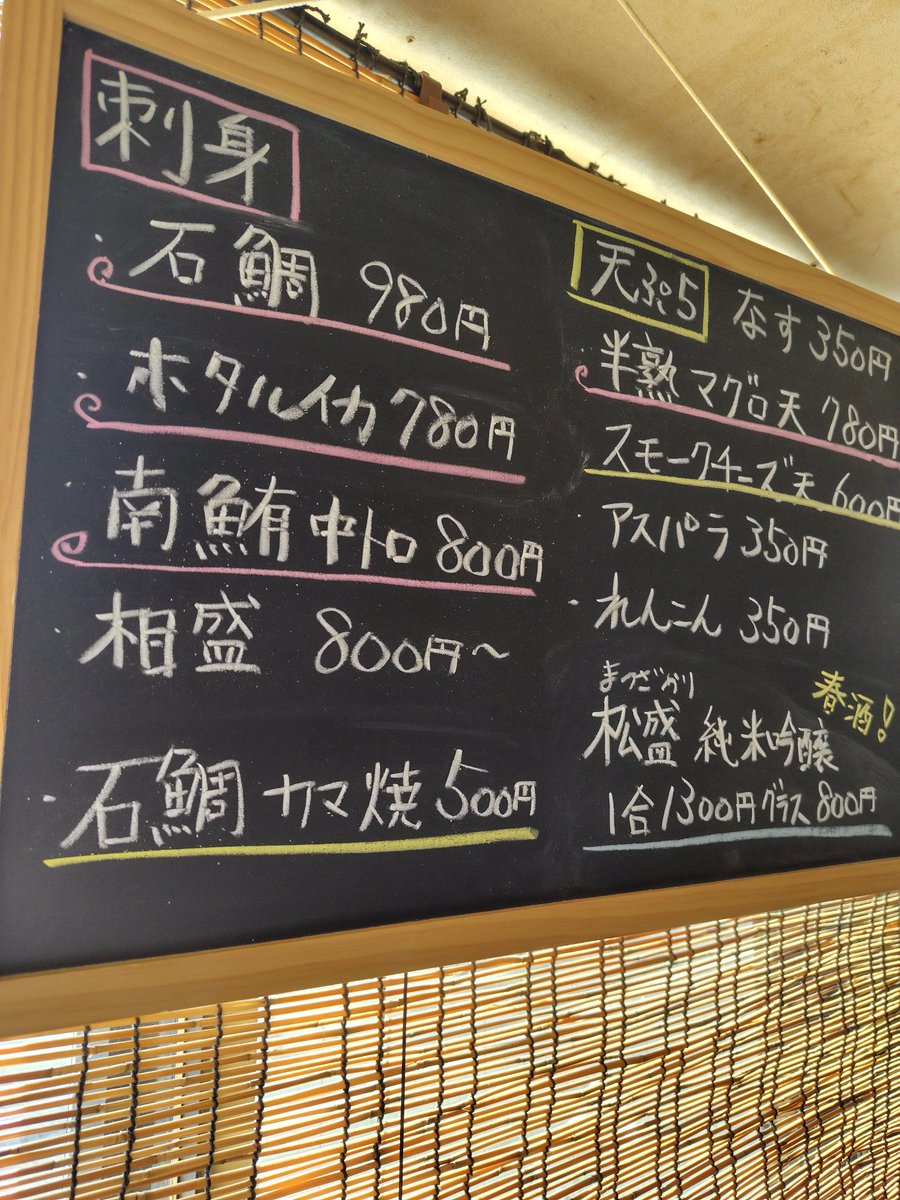 刺身
石鯛 980円
ホタルイカ 780円
南鮪 中トロ 800円
相盛 800円〜
石鯛 カマ焼 500円
天ぷら なす 350円
半熟マグロ天 780円
スモークチーズ天 600円
アスパラ 350円
れんこん 350円
まつざかり
春酒!
松盛 純米吟醸
1合1300円 グラス800円